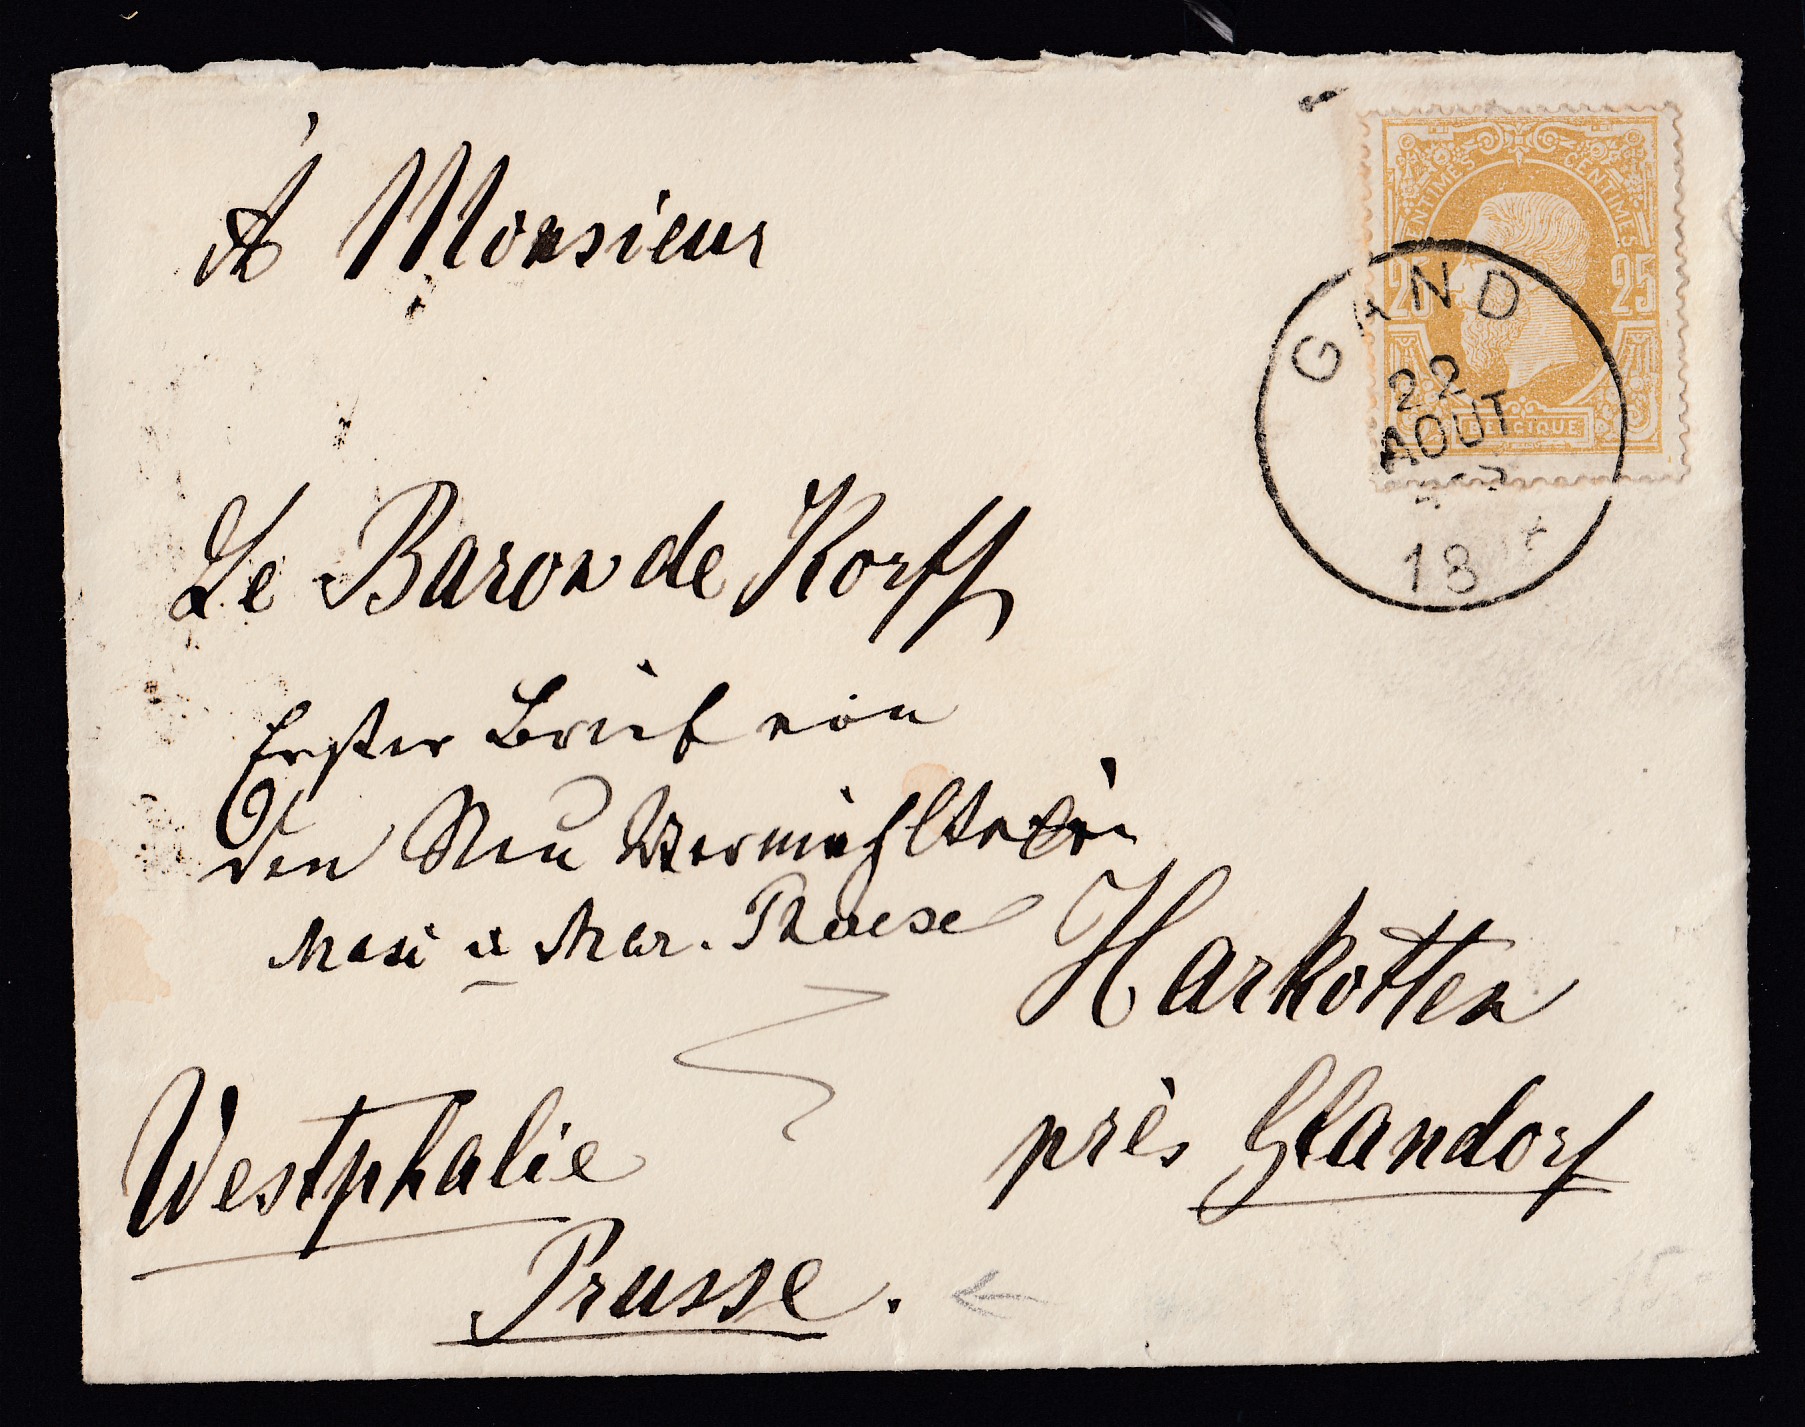 À Monsieur
CENTIMES CENTIMES
25 25
BELGIQUE
GAND
22
AOUT
18
Le Baron de Korff
Erster Brief von
den Neu Vermählten
Maxi u Mar. Therese
Harkotten
près Glandorf
Westphalie
Prusse.
15